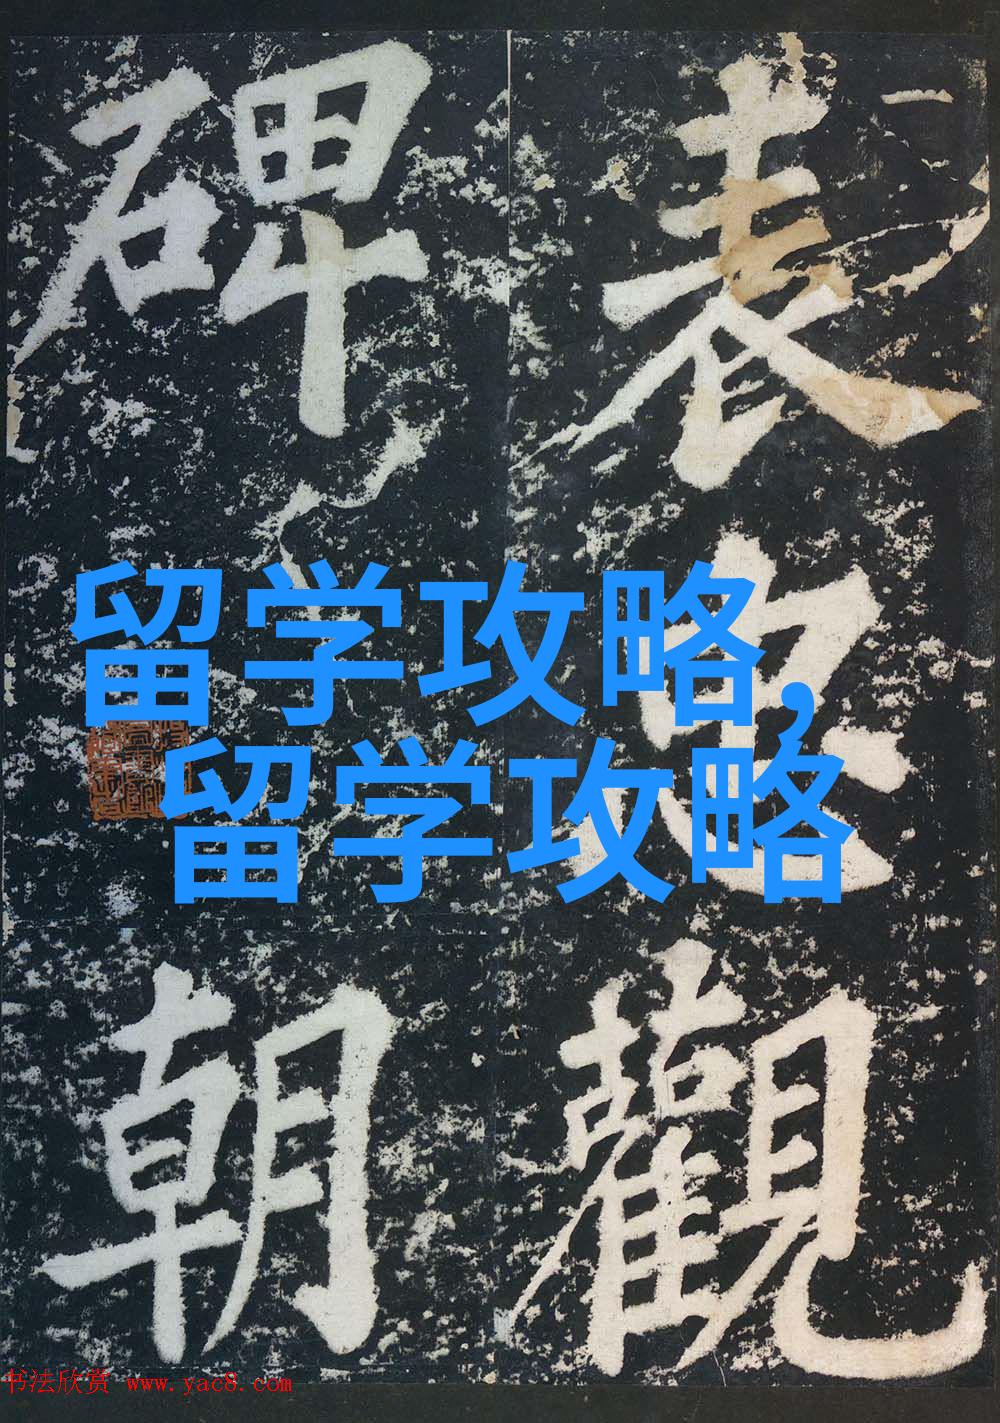 表忠觀
碑
朝
留学攻略,
留学攻略
书法欣赏 www.yac8.com